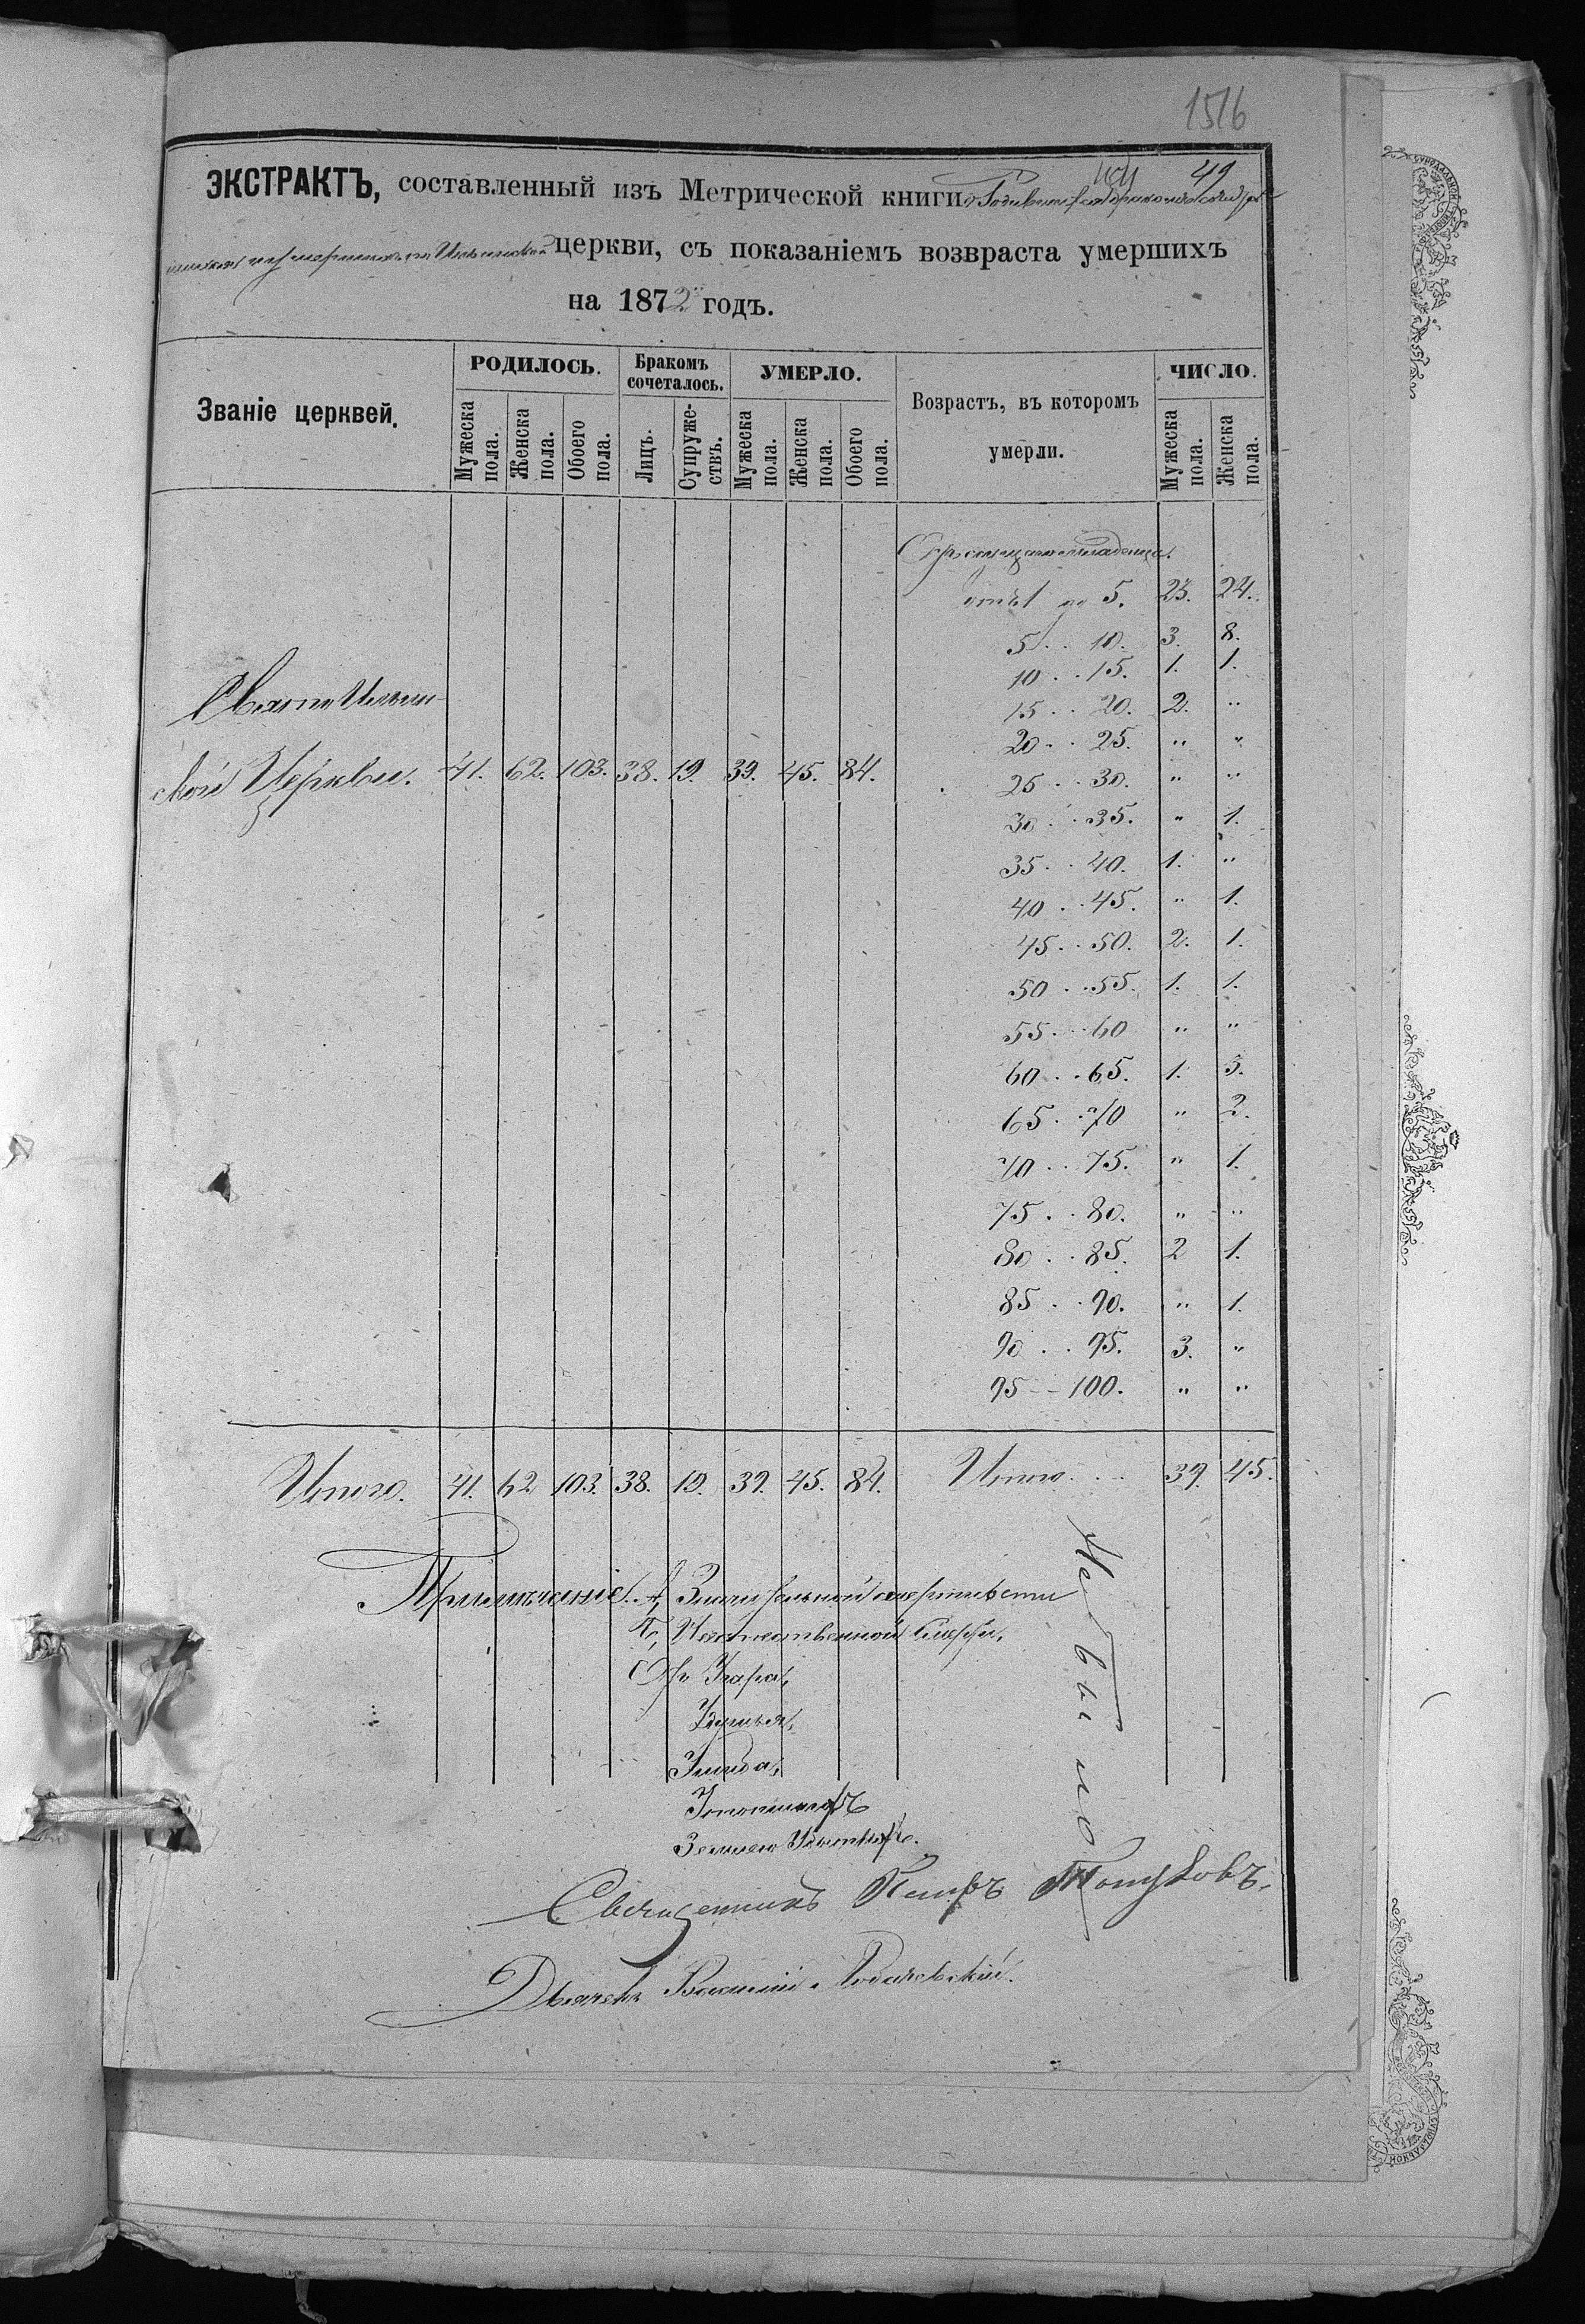 1516
49
ЭКСТРАКТЪ, составленный изъ Метрической книги о Родившихся
умершихъ по Ильинской церкви, съ показаніемъ возвраста умершихъ
на 1872 годъ.
Званіе церквей.
РОДИЛОСЬ.
Бракомъ сочеталось.
УМЕРЛО.
Возрастъ, въ которомъ умерли.
ЧИСЛО.
Мужеска пола.
Женска пола.
Обоего пола.
Лицъ.
Супружествъ.
Мужеска пола.
Женска пола.
Обоего пола.
Мужеска пола.
Женска пола.
младенца.
отъ 1 до 5. 23. 24.
5 . . 10. 3. 8.
10 . . 15. 1. 1.
15 . . 20. 2. "
20 . . 25. " "
25 . . 30. " "
30 . . 35. " 1.
35 . . 40. 1. "
40 . . 45. " 1.
45 . . 50. 2. 1.
50 . . 55. 1. 1.
55 . . 60 " "
60 . . 65. 1. 3.
65 . . 70 " 2.
70 . . 75. " 1.
75 . . 80. " "
80 . . 85. 2 1.
85 . . 90. " 1.
90 . . 95. 3. "
95 — 100. " "
Свято Ильин-
ской Церкви. 41. 62. 103. 38. 19. 39. 45. 84.
Итого. 41. 62 103. 38. 19. 39. 45. 84. Итого . . . 39. 45.
Примѣчаніе. А,
Б, смерти,
Отъ Угара,
Удушья,
Не было
Священникъ Петръ
Дьячекъ Василій